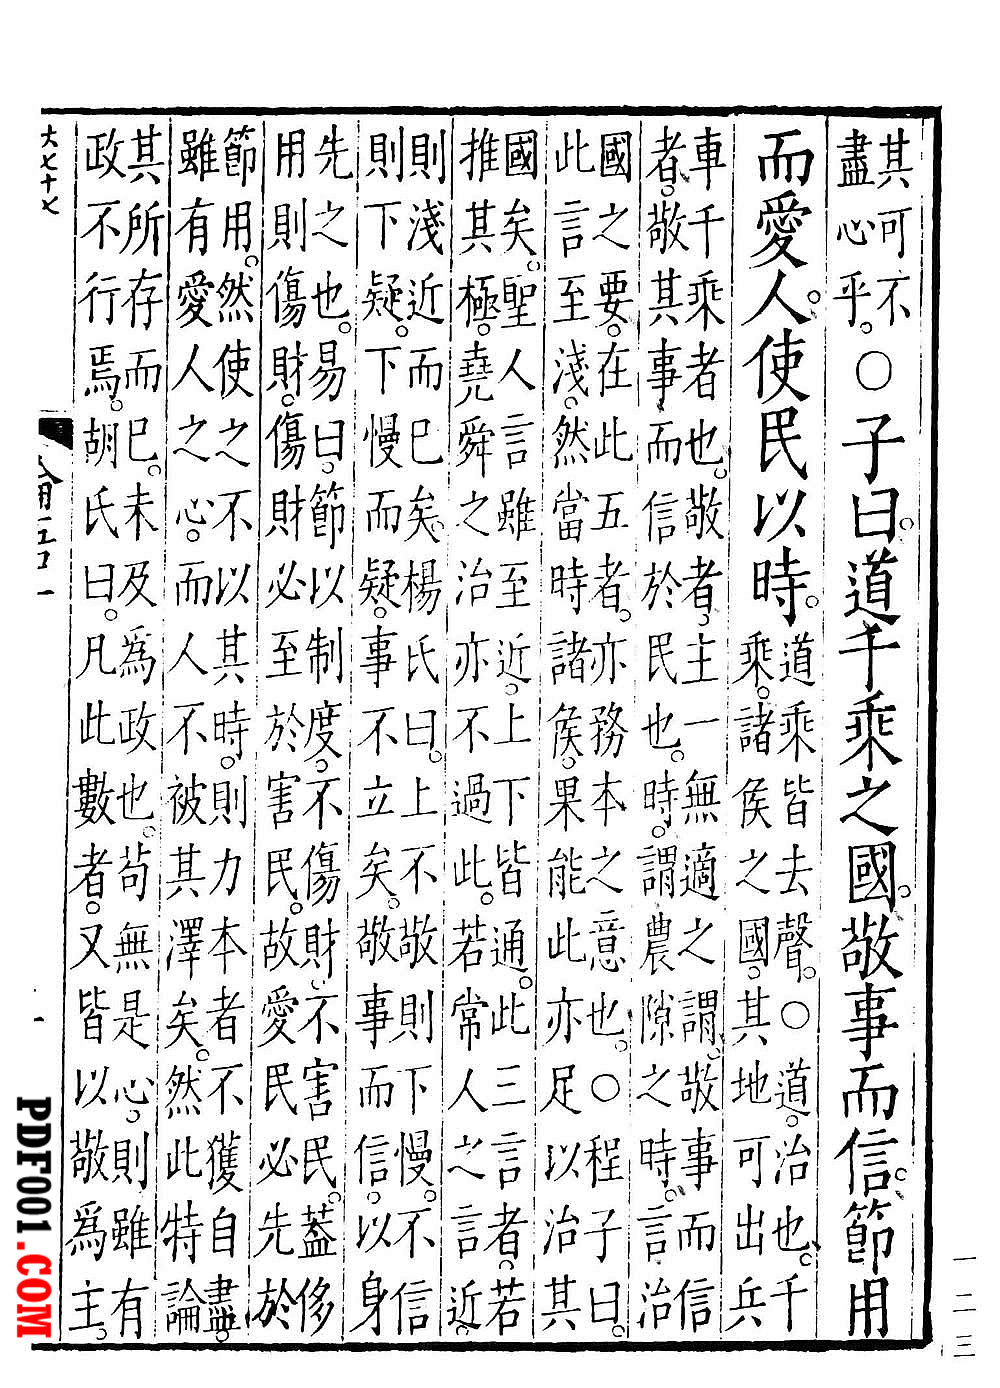 其可不
盡心乎。
○子曰。道千乘之國。敬事而信。節用
而愛人。使民以時。
道乘皆去聲。○道。治也。千
乘。諸侯之國。其地可出兵
車千乘者也。敬者、主一無適之謂。敬事而信
者。敬其事而信於民也。時。謂農隙之時。言治
國之要。在此五者。亦務本之意也。○程子曰。
此言至淺。然當時諸侯。果能此亦足以治其
國矣。聖人言雖至近。上下皆通。此三言者。若
推其極。堯舜之治亦不過此。若常人之言近。
則淺近而已矣。楊氏曰。上不敬則下慢。不信
則下疑。下慢而疑。事不立矣。敬事而信。以身
先之也。易曰。節以制度。不傷財。不害民。蓋侈
用則傷財。傷財必至於害民。故愛民必先於
節用。然使之不以其時。則力本者不獲自盡。
雖有愛人之心。而人不被其澤矣。然此特論
其所存而已。未及爲政也。苟無是心。則雖有
政不行焉。胡氏曰。凡此數者。又皆以敬爲主。
大七十七
一二三
PDF001.COM